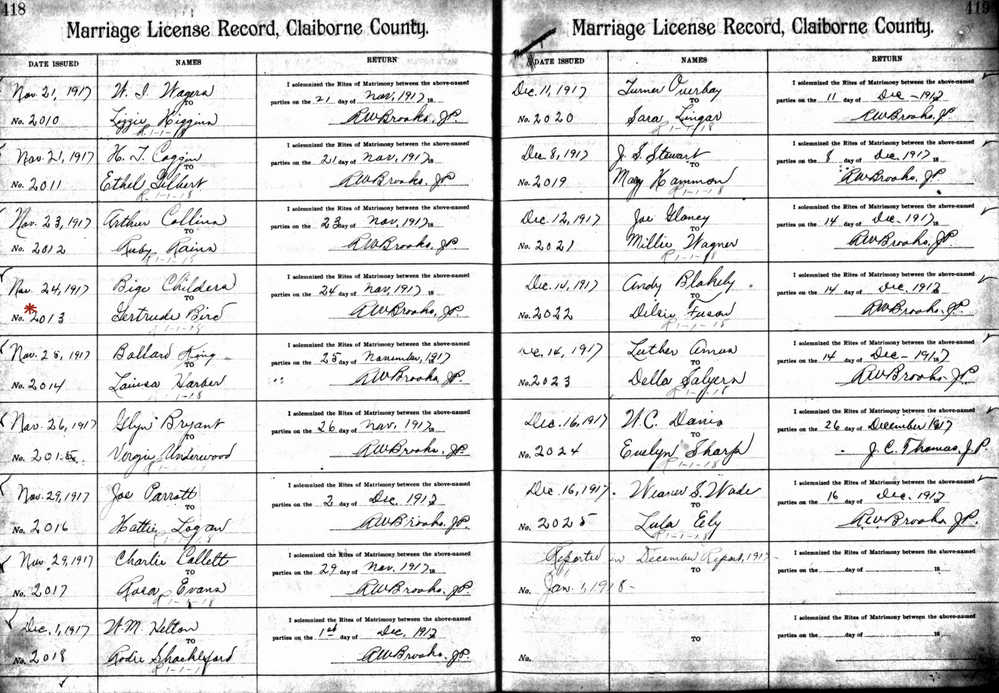 418
Marriage License Record, Claiborne County.
DATE ISSUED NAMES RETURN
Nov 21, 1917 W. I. Wagers I solemnized the Rites of Matrimony between the above-named
TO parties on the 21 day of Nov, 1917 18
No. 2010 Lizzie Higgins RW Brooks, JP.
R 1-1-18
Nov. 21, 1917 H. T. Coggin I solemnized the Rites of Matrimony between the above-named
TO parties on the 21 day of Nov, 1917 18
No. 2011 Ethel Gilbert RW Brooks, JP
R. 1-1-18
Nov. 23, 1917 Arthur Collins I solemnized the Rites of Matrimony between the above-named
TO parties on the 23 day of Nov, 1917 18
No. 2012 Ruby Rains RW Brooks, JP
R 1-1-18
Nov. 24, 1917 Bige Childers I solemnized the Rites of Matrimony between the above-named
TO parties on the 24 day of Nov, 1917 18
No. *2013 Gertrude Bird RW Brooks, JP
1-1-18
Nov. 25, 1917 Ballard King I solemnized the Rites of Matrimony between the above-named
TO parties on the 25 day of November, 1917
No. 2014 Harber RW Brooks, JP.
1-18
Nov. 26, 1917 Glyn Bryant I solemnized the Rites of Matrimony between the above-named
TO parties on the 26 day of Nov. 1917 18
No. 2015 Vergie Underwood RW Brooks, JP.
Nov. 29, 1917 Joe Parrott I solemnized the Rites of Matrimony between the above-named
TO parties on the 2 day of Dec, 1917
No. 2016 Hattie Logan RW Brooks, JP.
Nov. 29, 1917 Charlie Collett I solemnized the Rites of Matrimony between the above-named
TO parties on the 29 day of Nov. 1917 18
No. 2017 Rosa Evans RW Brooks, JP.
R 1-1-18
Dec. 1, 1917 W. M. Helton I solemnized the Rites of Matrimony between the above-named
TO parties on the 1st day of Dec, 1917
No. 2018 Shackleford RW Brooks, JP
1-1-18
419
Marriage License Record, Claiborne County.
DATE ISSUED NAMES RETURN
Dec. 11, 1917 Turner Overbay I solemnized the Rites of Matrimony between the above-named
TO parties on the 11 day of Dec - 1917
No. 2020 Sara Lingar RW Brooks, JP
R 1-1-18
Dec 8, 1917 J. S. Stewart I solemnized the Rites of Matrimony between the above-named
TO parties on the 8 day of Dec. 1917 18
No. 2019 May Hammon RW Brooks, JP
R 1-1-18
Dec. 12, 1917 Joe Glancy I solemnized the Rites of Matrimony between the above-named
TO parties on the 14 day of Dec. 1917 18
No. 2021 Millie Wagner RW Brooks, JP
R 1-1-18
Dec. 14, 1917 Andy Blakely I solemnized the Rites of Matrimony between the above-named
TO parties on the 14 day of Dec, 1917
No. 2022 Fuson RW Brooks, JP
R 1-1-18
ec. 14, 1917 Luther Amus I solemnized the Rites of Matrimony between the above-named
TO parties on the 14 day of Dec - 1917
No. 2023 Della Salyers RW Brooks, JP
1-1-18
Dec. 16, 1917 W. C. Davis I solemnized the Rites of Matrimony between the above-named
TO parties on the 26 day of December 1917
No. 2024 Evelyn Sharp J. C. Thomas, J.P.
R 1-1-18
Dec. 16, 1917 Weaver S. Wade I solemnized the Rites of Matrimony between the above-named
TO parties on the 16 day of Dec. 1917
No. 2025 Lula Ely RW Brooks JP.
R 1-1-18
Reported in December Report, 1917 - I solemnized the Rites of Matrimony between the above-named
TO parties on the day of 18
No. Jan. 1, 1918 -
I solemnized the Rites of Matrimony between the above-named
TO parties on the day of 18
No.